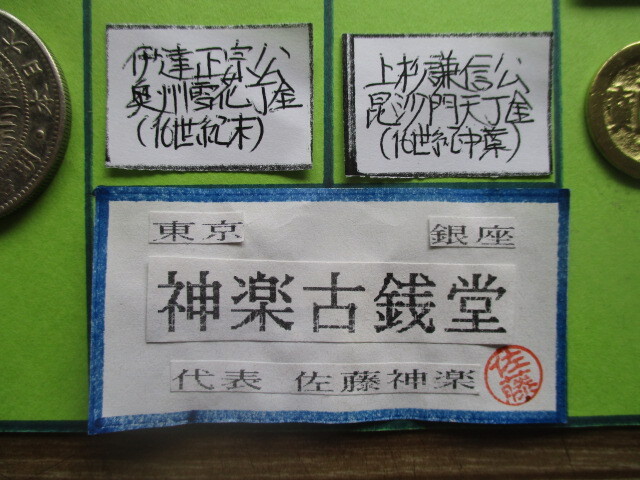 伊達正宗公
奥州雪花丁金
(16世紀末)
上杉謙信公
毘沙門天丁金
(16世紀中葉)
東京 銀座
神楽古銭堂
代表 佐藤神楽
佐藤